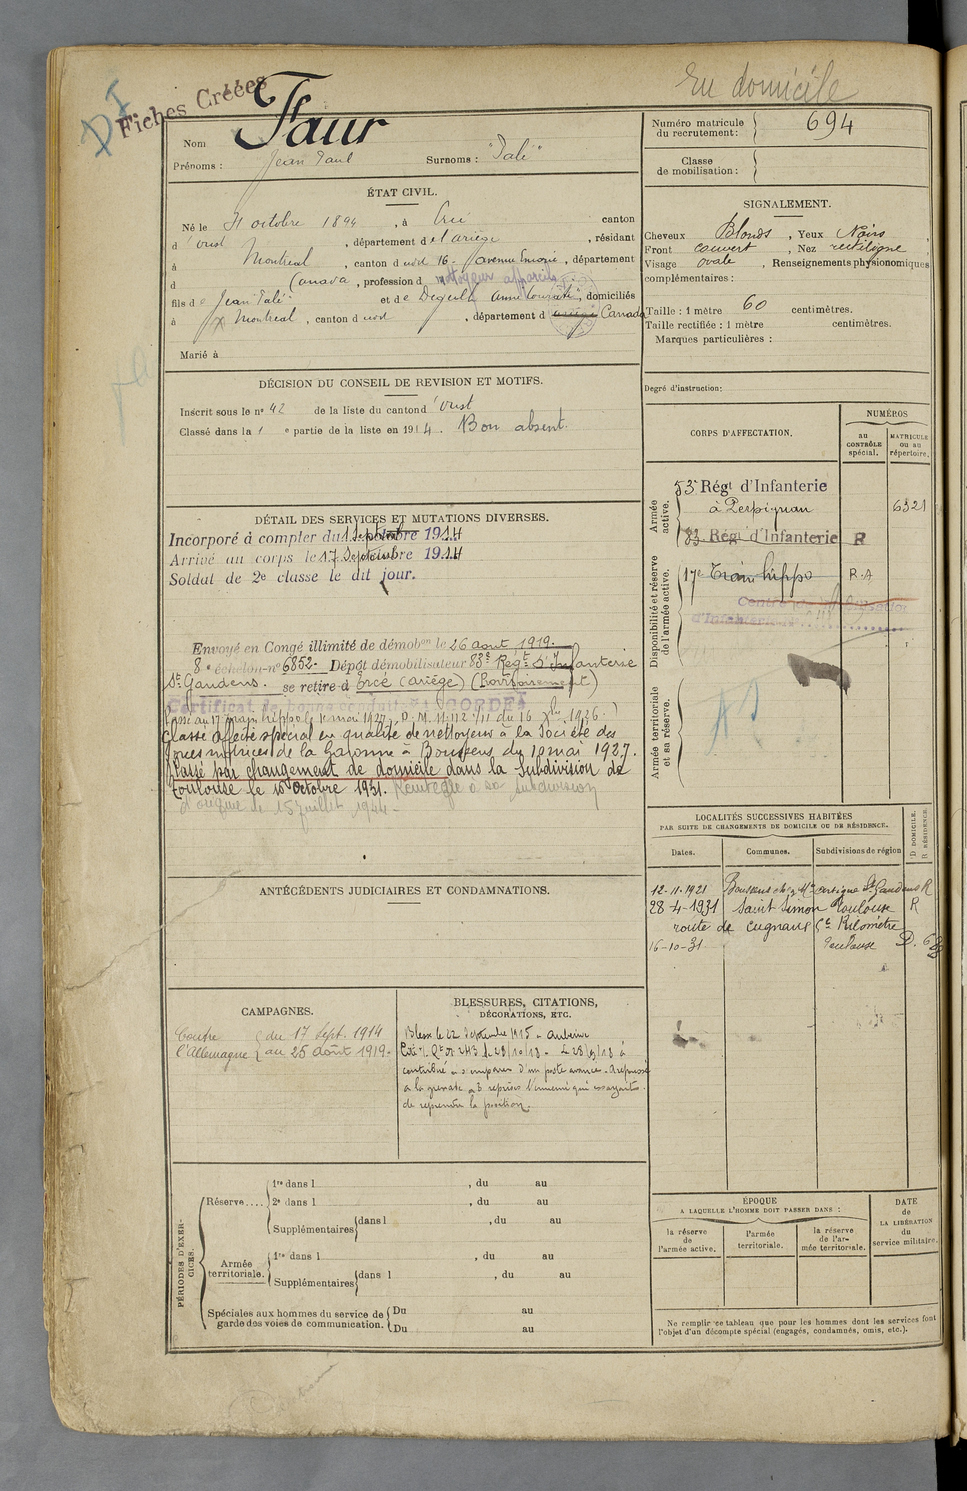 En domicile
Fiches Créées
Nom Faur
Prénoms : Jean Paul Surnoms : "Palé"
ÉTAT CIVIL.
Né le 31 octobre 1894, à Ercé canton
d'oust, département de l'ariège, résidant
à Montreal, canton d nord 16 - avenue, département
d Canada, profession d nettoyeur appareils
fils de Jean Palé et de Degeilh Anne, domiciliés
à Montreal, canton d nord, département d ariège Canada
Marié à
DÉCISION DU CONSEIL DE REVISION ET MOTIFS.
Inscrit sous le n° 42 de la liste du canton d'oust
Classé dans la 1e partie de la liste en 1914. Bon absent.
DÉTAIL DES SERVICES ET MUTATIONS DIVERSES.
Incorporé à compter du 1 Septembre 1914
Arrivé au corps le 17 Septembre 1914
Soldat de 2e classe le dit jour.
Envoyé en Congé illimité de démobon le 26 aout 1919.
8e échelon n° 6852. Dépôt démobilisateur 83e Régt d'Infanterie
St Gaudens. se retire à Ercé (ariége) (Provisoirement)
Certificat de bonne conduite ACCORDÉ
Passé au 17 train hippo le 1er mai 1927. D. M. 11.112 /11 du 16 1926.
Classé affecté spécial en qualité de nettoyeur à la Société des
forces motrices de la Garonne à Boussens du 10 mai 1927.
Passé par changement de domicile dans la Subdivision de
Toulouse le 16 octobre 1931. Réintégré à sa subdivision
d'origine le 15 juillet 1944.
ANTÉCÉDENTS JUDICIAIRES ET CONDAMNATIONS.
CAMPAGNES.
Contre { du 17 sept. 1914
l'Allemagne { au 25 août 1919.
BLESSURES, CITATIONS,
DÉCORATIONS, ETC.
Blessé le 22 Septembre 1915 à Auberive
Cité 243 du 28/10/18. Le 28/9/18 à
contribué à s'emparer d'un poste avancé. A repoussé
à la grenade à 3 reprises l'ennemi qui essayait
de reprendre la position.
PÉRIODES D'EXERCICES.
Réserve....
1re dans l , du au
2e dans l , du au
Supplémentaires { dans l , du au
Armée
territoriale.
1re dans l , du au
Supplémentaires { dans l , du au
Spéciales aux hommes du service de
garde des voies de communication.
Du au
Du au
Numéro matricule
du recrutement : 694
Classe
de mobilisation :
SIGNALEMENT.
Cheveux Blonds, Yeux Noirs,
Front couvert, Nez rectiligne
Visage ovale, Renseignements physionomiques
complémentaires :
Taille : 1 mètre 60 centimètres.
Taille rectifiée : 1 mètre centimètres.
Marques particulières :
Degré d'instruction :
CORPS D'AFFECTATION.
NUMÉROS
au
CONTRÔLE
spécial.
MATRICULE
ou au
répertoire.
Armée
active.
53e Régt d'Infanterie
à Perpignan 6321
83 Régt d'Infanterie R
Disponibilité et réserve
de l'armée active.
17e Train hippo R.A
Centre de Mobilisation
d'Infanterie
Armée territoriale
et sa réserve.
LOCALITÉS SUCCESSIVES HABITÉES
PAR SUITE DE CHANGEMENTS DE DOMICILE OU DE RÉSIDENCE.
Dates. Communes. Subdivisions de région D. DOMICILE. R. RÉSIDENCE.
12-11-1921 Boussens chez Mr St Gaudens R
28-4-1931 Saint Simon Toulouse R
route de Cugnaux 6e Kilomètre
16-10-31 Toulouse D.
ÉPOQUE
A LAQUELLE L'HOMME DOIT PASSER DANS :
la réserve
de
l'armée active.
l'armée
territoriale.
la réserve
de l'ar-
mée territoriale.
DATE
de
LA LIBÉRATION
du
service militaire.
Ne remplir ce tableau que pour les hommes dont les services font
l'objet d'un décompte spécial (engagés, condamnés, omis, etc.).